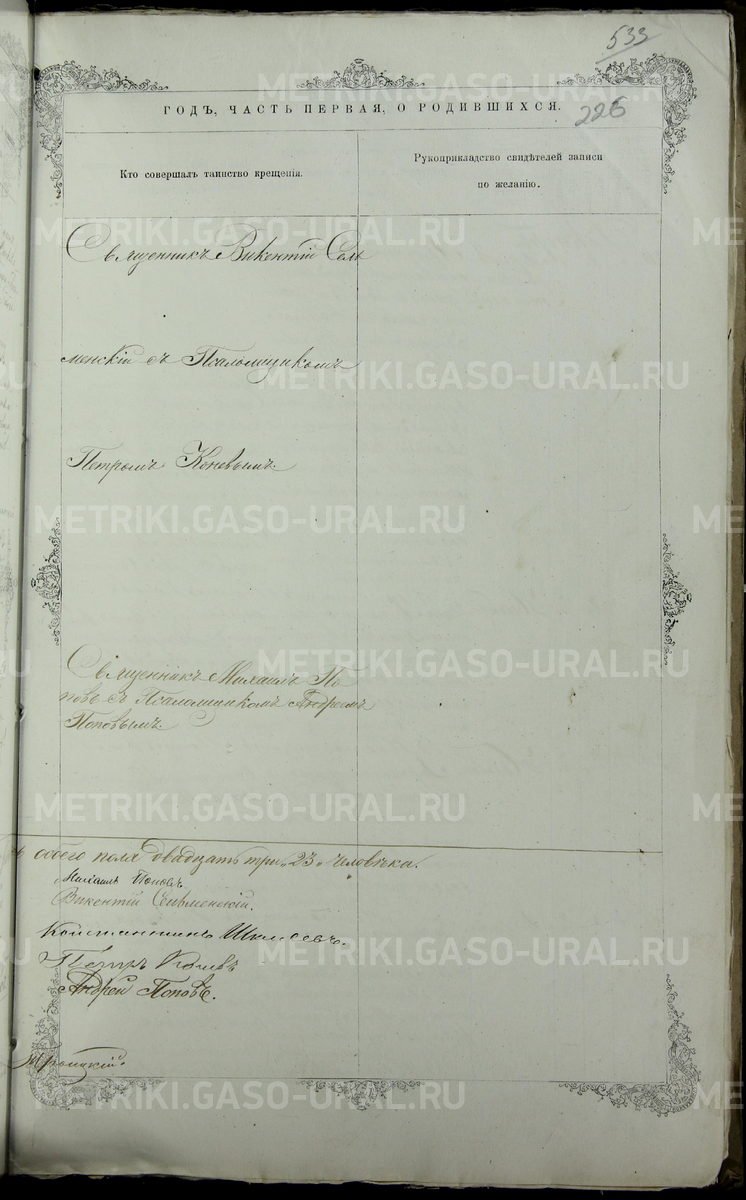 533
226
ГОДЪ, ЧАСТЬ ПЕРВАЯ, О РОДИВШИХСЯ.
Кто совершалъ таинство крещенія.
Рукоприкладство свидѣтелей записи
по желанію.
Священникъ Викентій Сель
менскій съ Псаломщикомъ
Петромъ Коневымъ.
Священникъ Михаилъ По
повъ съ Псаломщикомъ Андреемъ
Поповымъ.
обоего пола двадцать три „23„ человѣка.
Михаилъ Поповъ
Викентій Сельменскій.
Константинъ
Петръ Коневъ
Андрей Поповъ.
METRIKI.GASO-URAL.RU